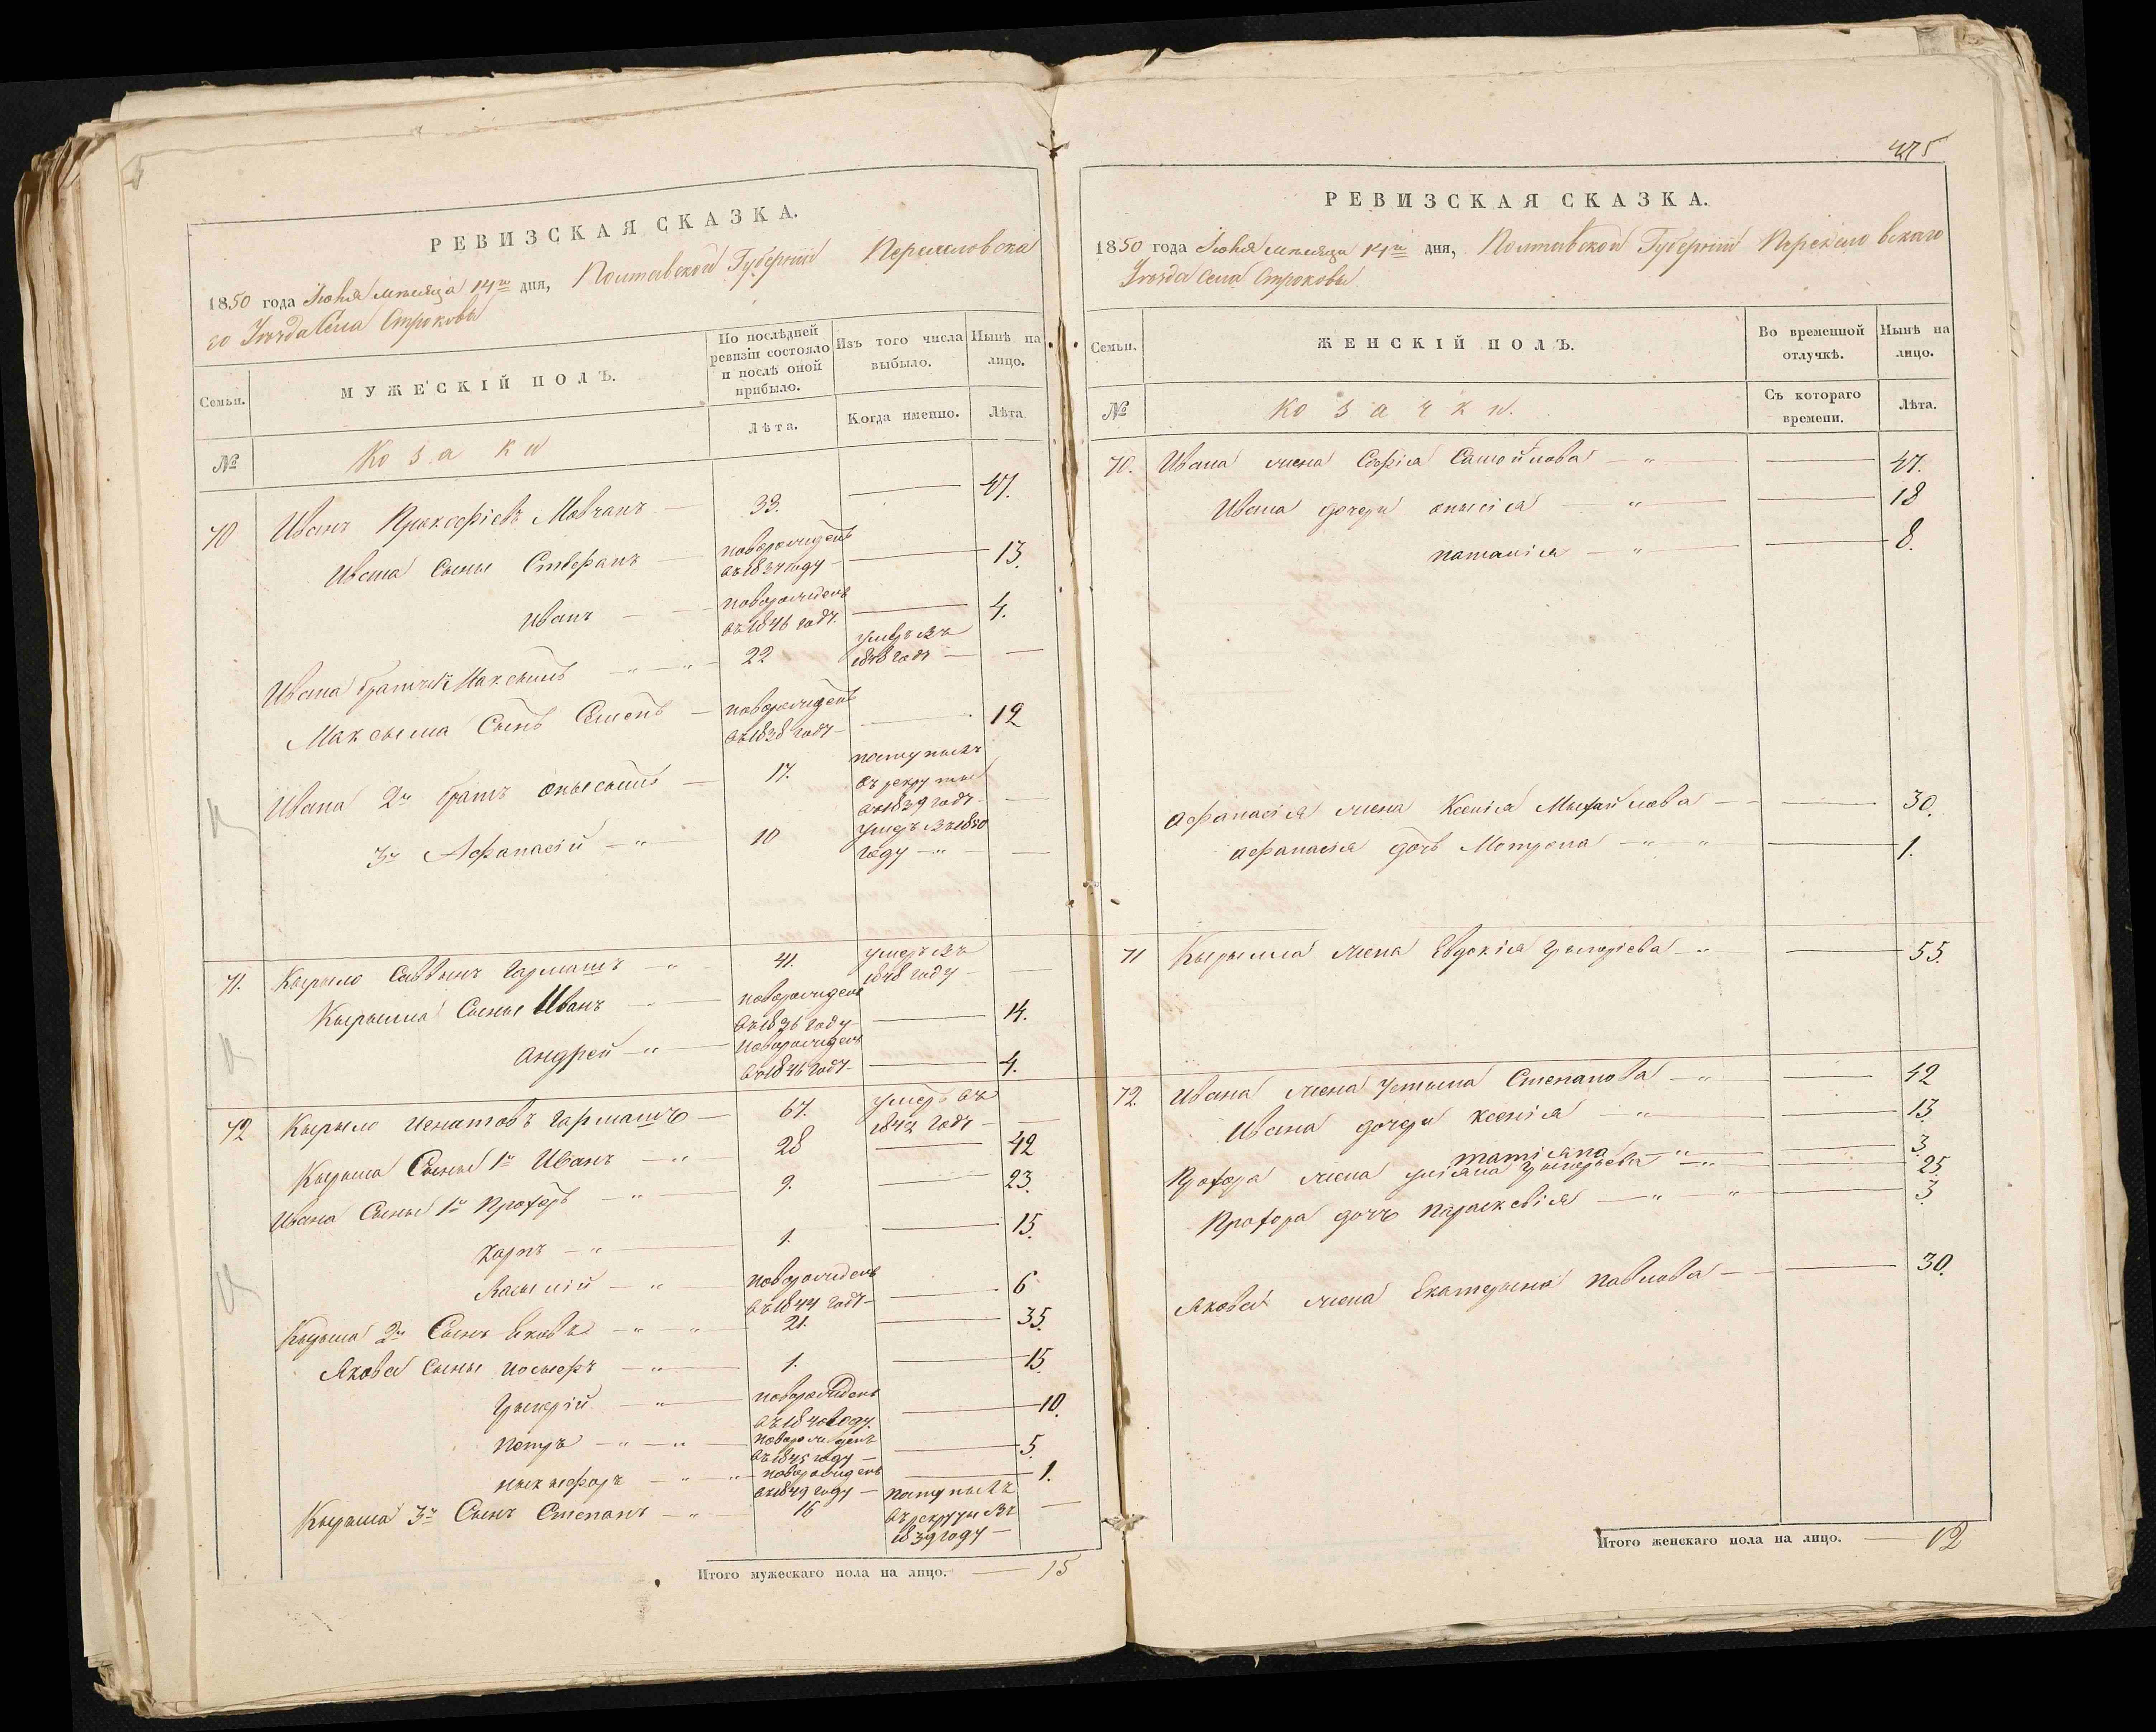 РЕВИЗСКАЯ СКАЗКА.
1850 года Іюня месяца 14го дня, Полтавской Губерніи Переяславска
го Уезда Села Строковы
Семьи.
МУЖЕСКІЙ ПОЛЪ.
По послѣдней ревизіи состояло и послѣ оной прибыло.
Изъ того числа выбыло.
Нынѣ на лицо.
Лѣта.
Когда именно.
Лѣта
№
Козаки
70 Иванъ Прокофіевъ Мовчанъ 33. 47.
Ивана Сыны Стефанъ новорожденъ въ 1837 году 13.
Иванъ новорожденъ въ 1846 году. 4.
Ивана братъ 1й Максымъ 22 умеръ въ 1848 году
Максыма Сынъ Семенъ новорожденъ въ 1838 году 12
Ивана 2й братъ Онысымъ 17. поступылъ въ рекруты въ 1839 году
3й Афанасій 10 умеръ въ 1850 году
71. Кырыло Саввынъ Гармашъ 41. умеръ въ 1848 году
Кырыла Сыны Иванъ новорожденъ въ 1836 году 14.
Андрей новорожденъ въ 1846 году 4.
72 Кырыло Игнатовъ Гармашъ 67. умеръ въ 1842 году
Кырыла Сыны 1й Иванъ 28 42
Ивана Сыны 1й Прохоръ 9. 23.
Карпъ 1. 15.
Васылій новорожденъ въ 1844 году 6
Кырыла 2й Сынъ Яковъ 21. 35.
Якова Сыны Иосыфъ 1. 15.
Грыгорій новорожденъ въ 1840 году. 10.
Петръ новорожденъ въ 1845 году 5.
Ныкыфоръ новорожденъ въ 1849 году 1.
Кырыла 3й Сынъ Степанъ 16 поступылъ въ рекруты въ 1839 году
Итого мужескаго пола на лицо. 15
475
РЕВИЗСКАЯ СКАЗКА.
1850 года Іюня месяца 14го дня, Полтавской Губерніи Переяславскаго
Уезда Села Строковы
Семьи.
ЖЕНСКІЙ ПОЛЪ.
Во временной отлучкѣ.
Нынѣ на лицо.
№
Козачки.
Съ котораго времени.
Лѣта.
70. Ивана жена Софія Самойлова 47.
Ивана дочери Анысія 18
Наталія 8.
Афанасія жена Ксенія Мыхайлова 30.
Афанасія дочь Мотрона 1.
71 Кырыла жена Евдокія Грыгорієва 55.
72. Ивана жена Устына Степанова 42
Ивана дочери Ксенія 13.
Татіяна 3.
Прохора жена Уліяна Грыгорьева 25.
Прохора дочь Параскевія 3.
Якова жена Екатерына Павлова 30.
Итого женскаго пола на лицо. 12